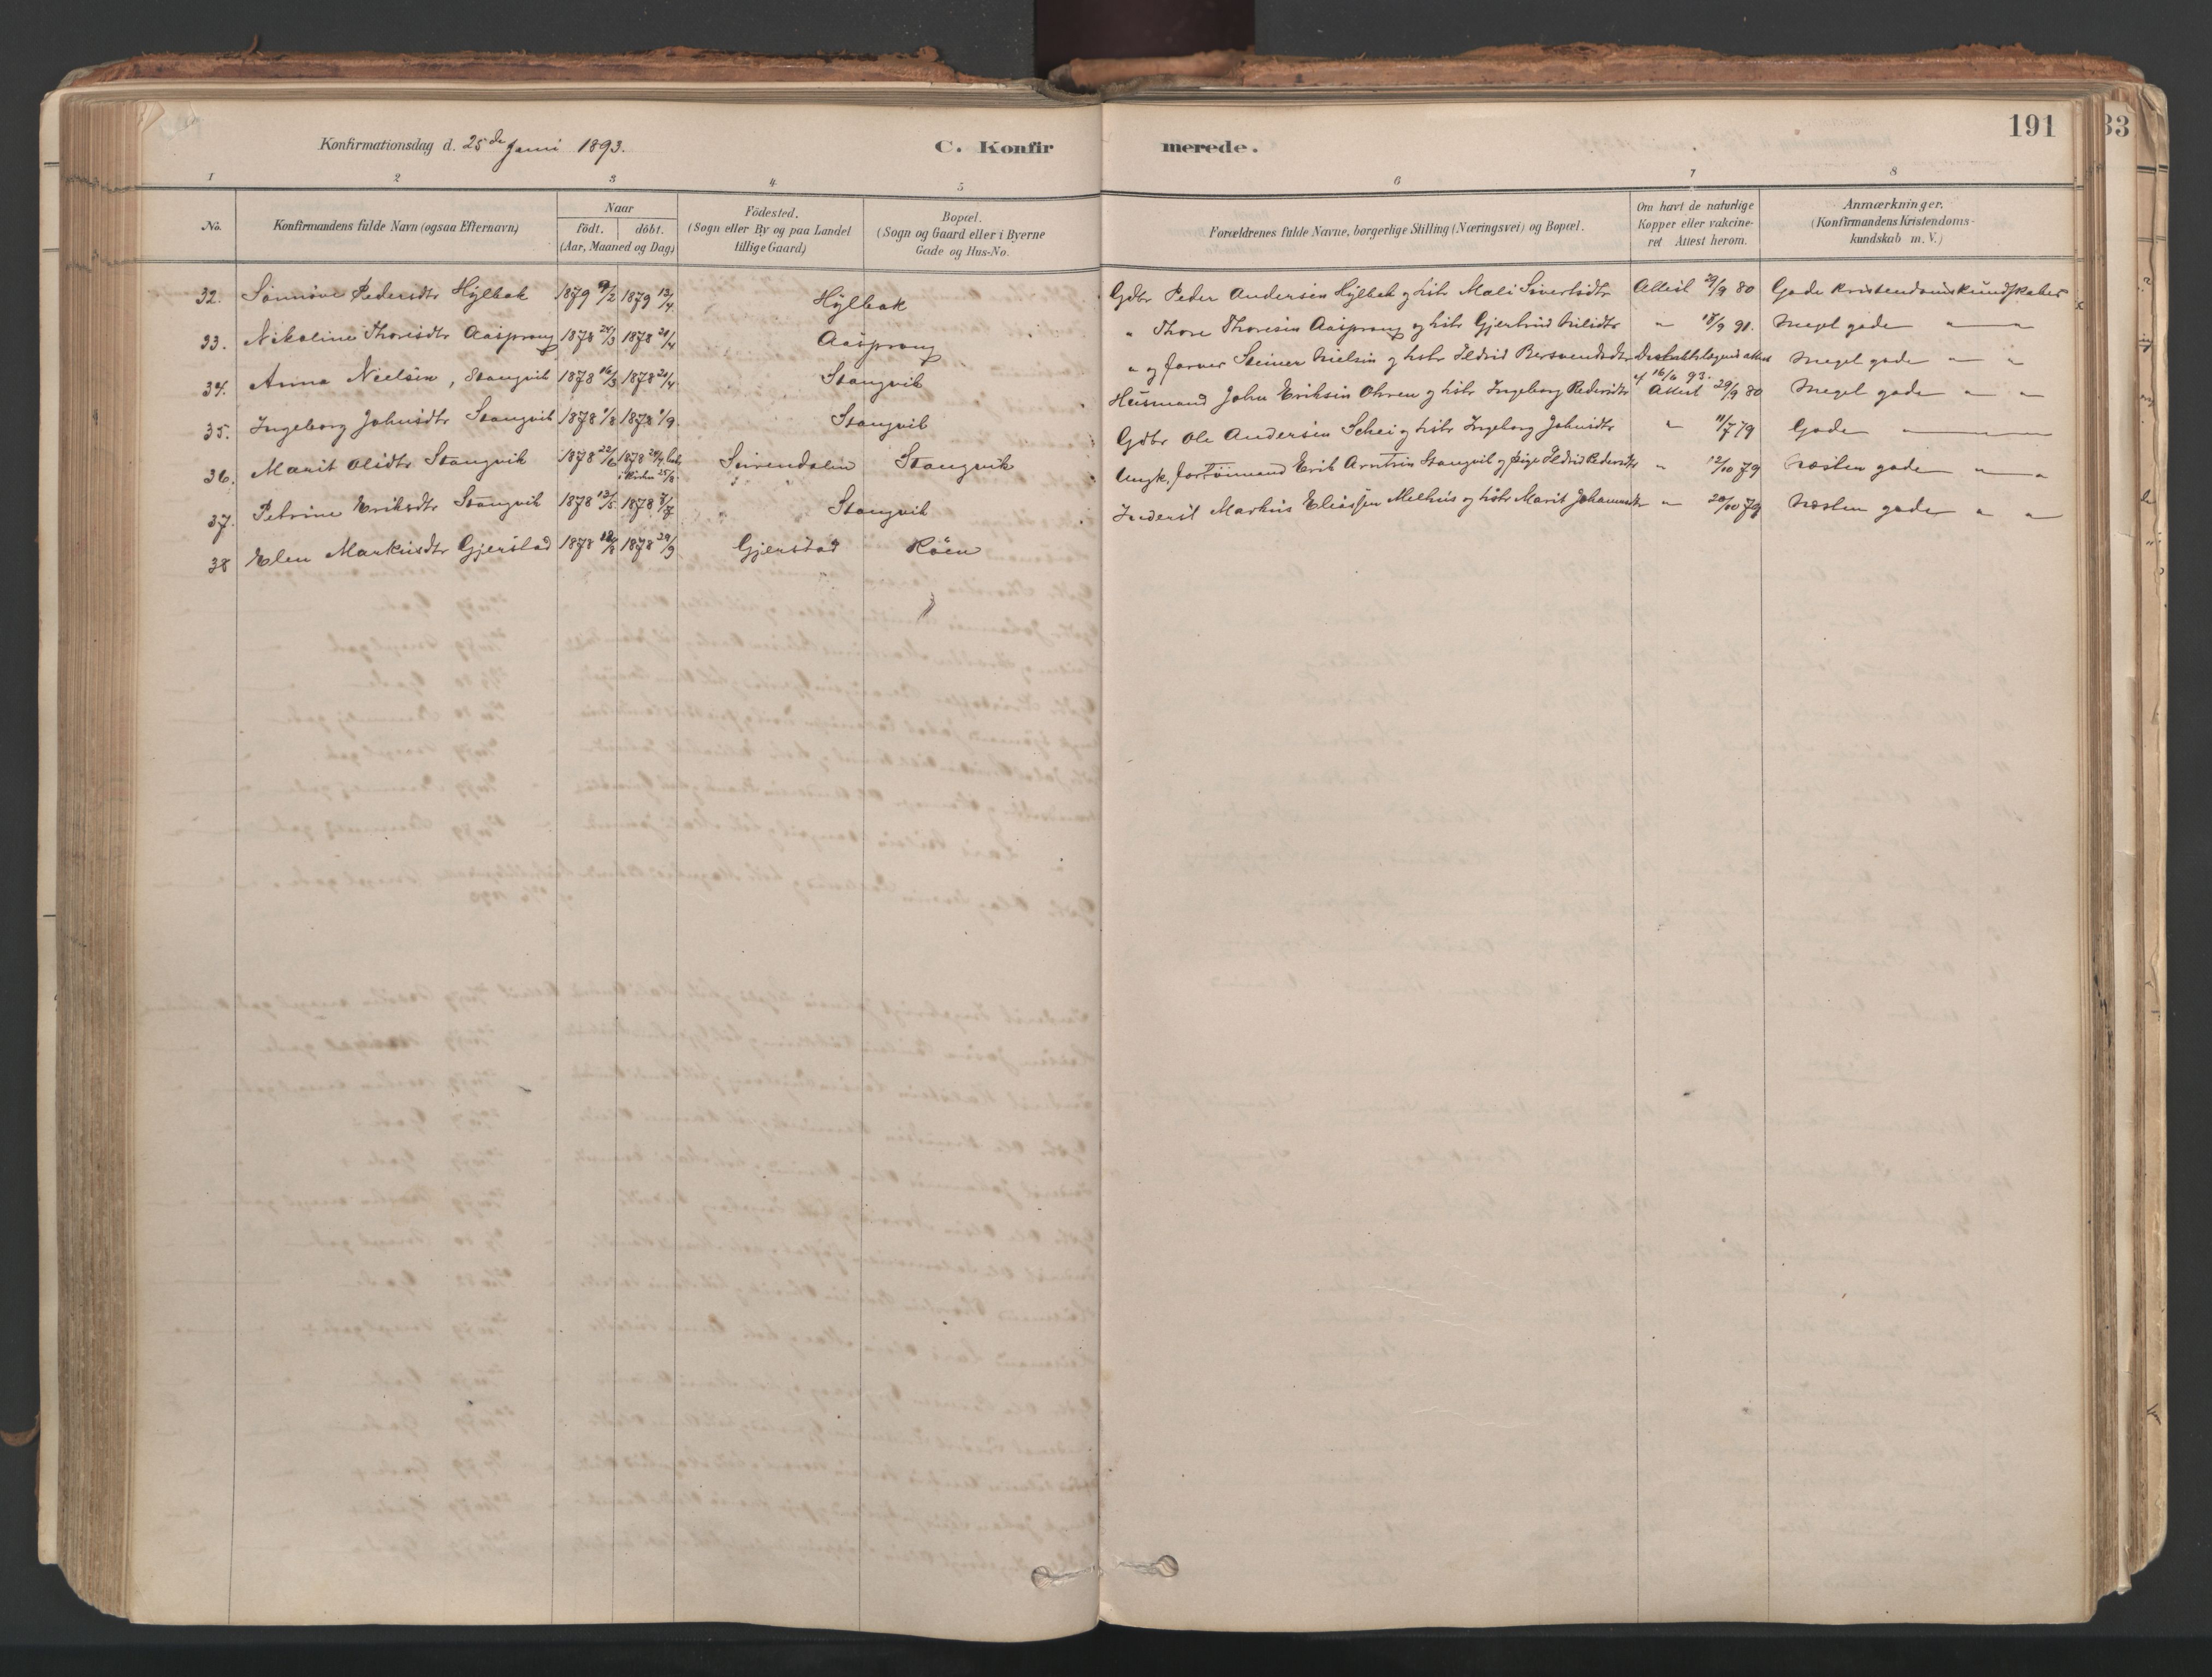 191
33
Konfirmationsdag d. 25de Juni 1893.
C. Konfirmerede.
1 2 3 4 5 6 7 8
No.
Konfirmandens fulde Navn (ogsaa Efternavn)
Naar
födt. döbt.
(Aar, Maaned og Dag)
Födested.
(Sogn eller By og paa Landet
tillige Gaard)
Bopæl.
(Sogn og Gaard eller i Byerne
Gade og Hus-No.
Forældrenes fulde Navne, borgerlige Stilling (Næringsvei) og Bopæl.
Om havt de naturlige
Kopper eller vakcine-
ret. Attest herom.
Anmærkninger.
(Konfirmandens Kristendoms-
kundskab m. V.)
32. Sönnöve Pedersdtr Hÿlbak 1879 9/2 1879 13/4 Hÿlbak Gdbr Peder Andersen Hÿlbak og hstr Mali Sivertsdtr Attest 29/9 80 Gode Kristendomskundskaber
33. Nikoline Thoresdtr Aasprong 1878 24/3 1878 21/4 Aasprong " Thore Thoresen Aasprong og hstr Gjertrud Nilsdtr " 18/9 91. Meget gode " "
34. Anna Nielsen, Stangvik 1878 16/3 1878 21/4 Stangvik " og farver Steiner Nielsen og hstr Ildrid Bersvendsdtr Distriktslægens attest af 16/6 93. Meget gode " "
35. Ingeborg Johnsdtr Stangvik 1878 1/8 1878 1/9. Stangvik Husmand John Eriksen Ohren og hstr Ingeborg Pedersdtr Attest 29/9 80 Meget gode " "
36. Marit Olsdtr Stangvik 1878 22/6 1878 i Kirken 25/8 Svirendalen Stangvik Gdbr Ole Andersen Schei og hstr Ingeborg Johnsdtr " 11/7 79 Gode
37. Petrine Eriksdtr Stangvik 1878 13/5 1878 7/7 " Stangvik Ungk. Erik Arntsen Stangvik og pige Ildrid Pedersdtr " 12/10 79 Næsten gode " "
38 Elen Markusdtr Gjerstad 1878 18/8 1878 29/9 Gjerstad Röen Inderst Markus Eliassen Melhus og hstr Marit " 20/10 79 Næsten gode " "